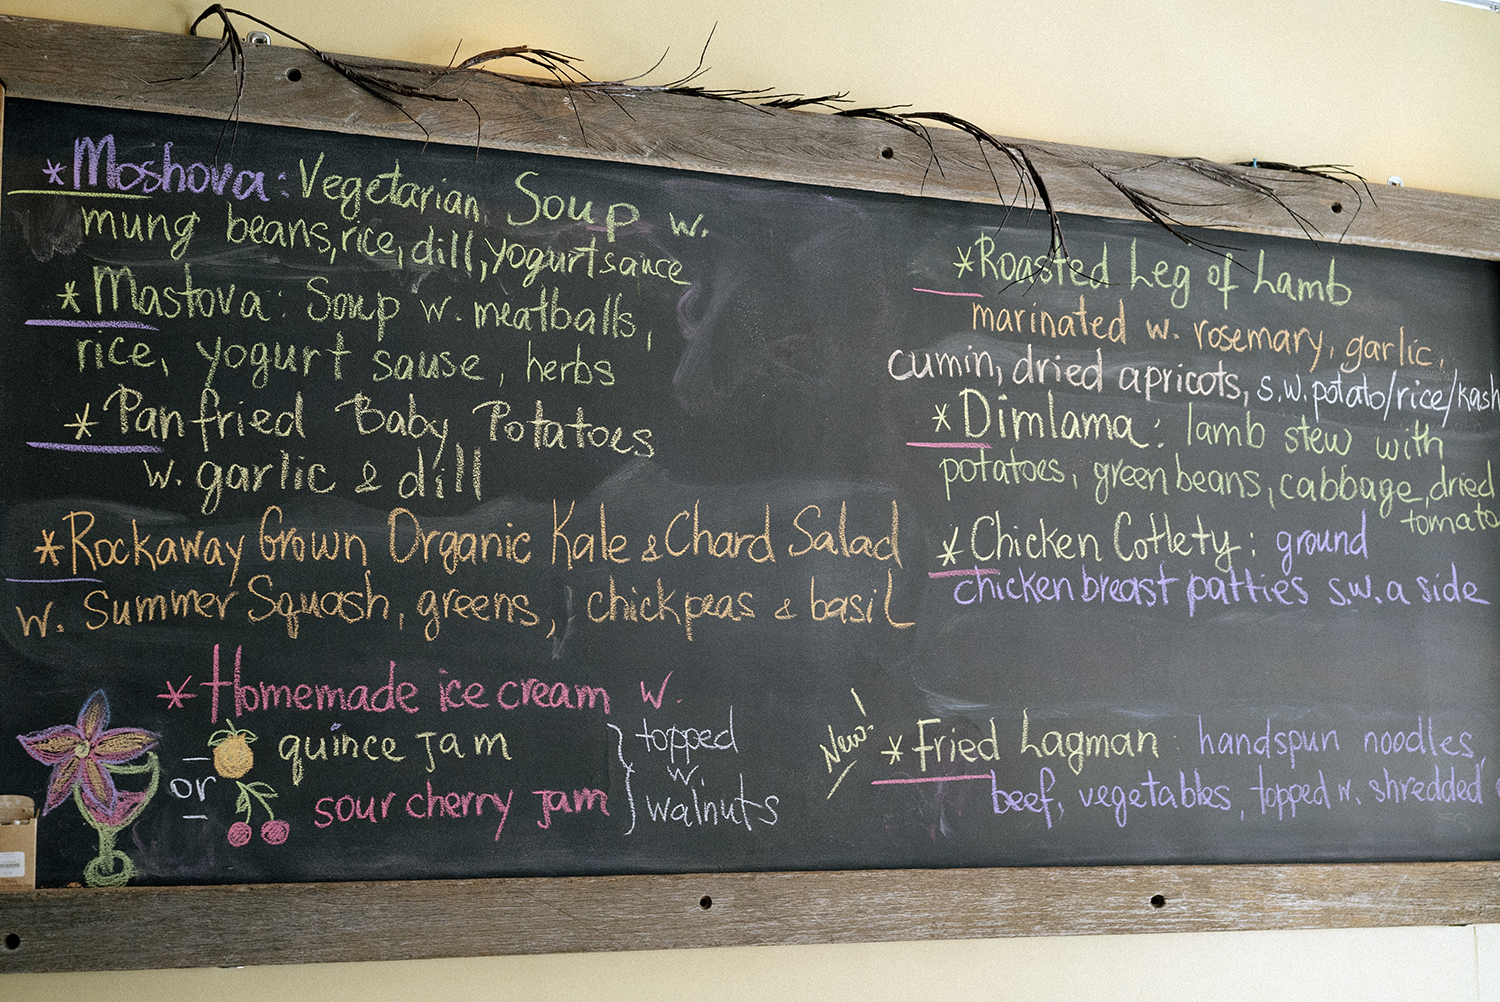 *Moshova: Vegetarian Soup w.
mung beans, rice, dill, yogurt sauce
*Mastova: Soup w. meatballs,
rice, yogurt sause, herbs
*Panfried Baby Potatoes
w. garlic & dill
*Rockaway Grown Organic Kale & Chard Salad
w. Summer Squash, greens, chickpeas & basil
*Homemade ice cream w.
quince jam
or
sour cherry jam
topped
w.
walnuts
*Roasted Leg of Lamb
marinated w. rosemary, garlic,
cumin, dried apricots, s.w. potato/rice/kash
*Dimlama: lamb stew with
potatoes, green beans, cabbage, dried
tomato
*Chicken Cotlety: ground
chicken breast patties s.w. a side
New!
*Fried Lagman: handspun noodles,
beef, vegetables, topped w. shredded